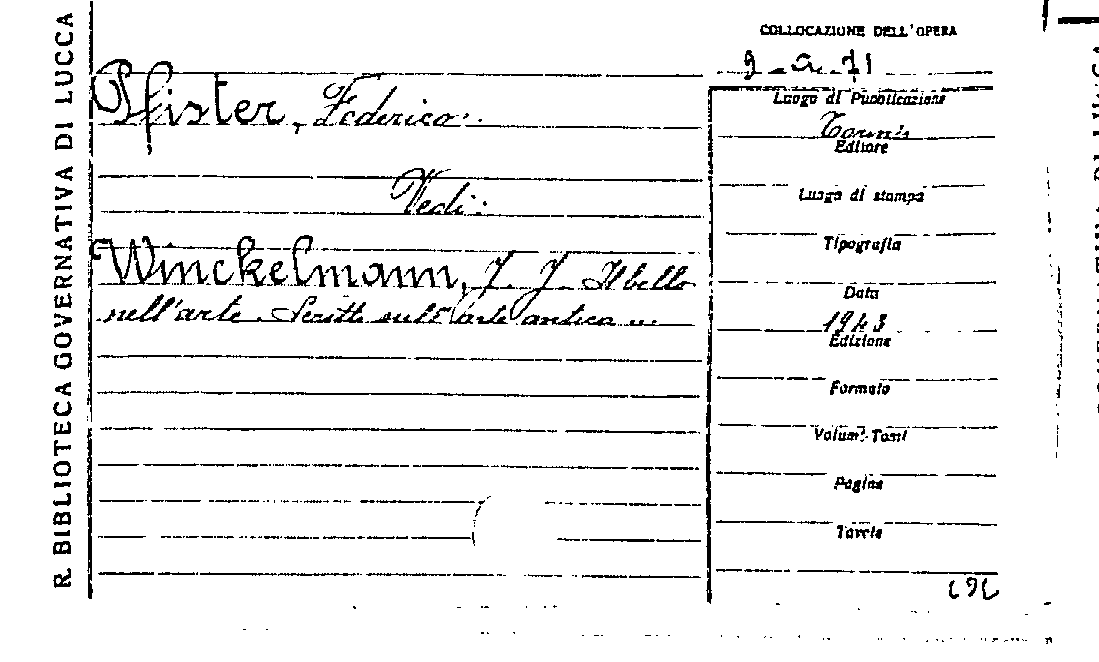 R. BIBLIOTECA GOVERNATIVA DI LUCCA
COLLOCAZIONE DELL'OPERA
9-a-71
Pfister, Federico.
Vedi:
Winckelmann, J. J. Il bello
nell'arte. Scritti sull'arte antica ...
Luogo di Pubblicazione
Torino
Editore
Luogo di stampa
Tipografia
Data
1943
Edizione
Formato
Volumi-Tomi
Pagine
Tavole